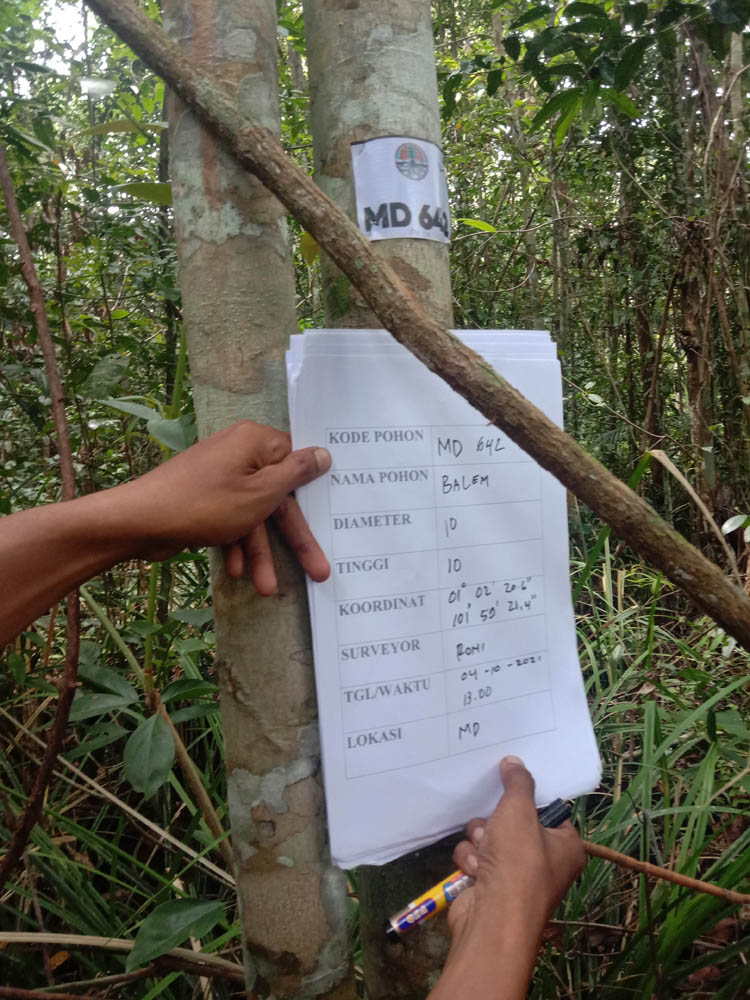 MD 642
KODE POHON MD 642
NAMA POHON BALEM
DIAMETER 10
TINGGI 10
KOORDINAT 01° 02' 20.6"
101° 59' 21,4"
SURVEYOR RONI
TGL/WAKTU 04-10-2021
13.00
LOKASI MD